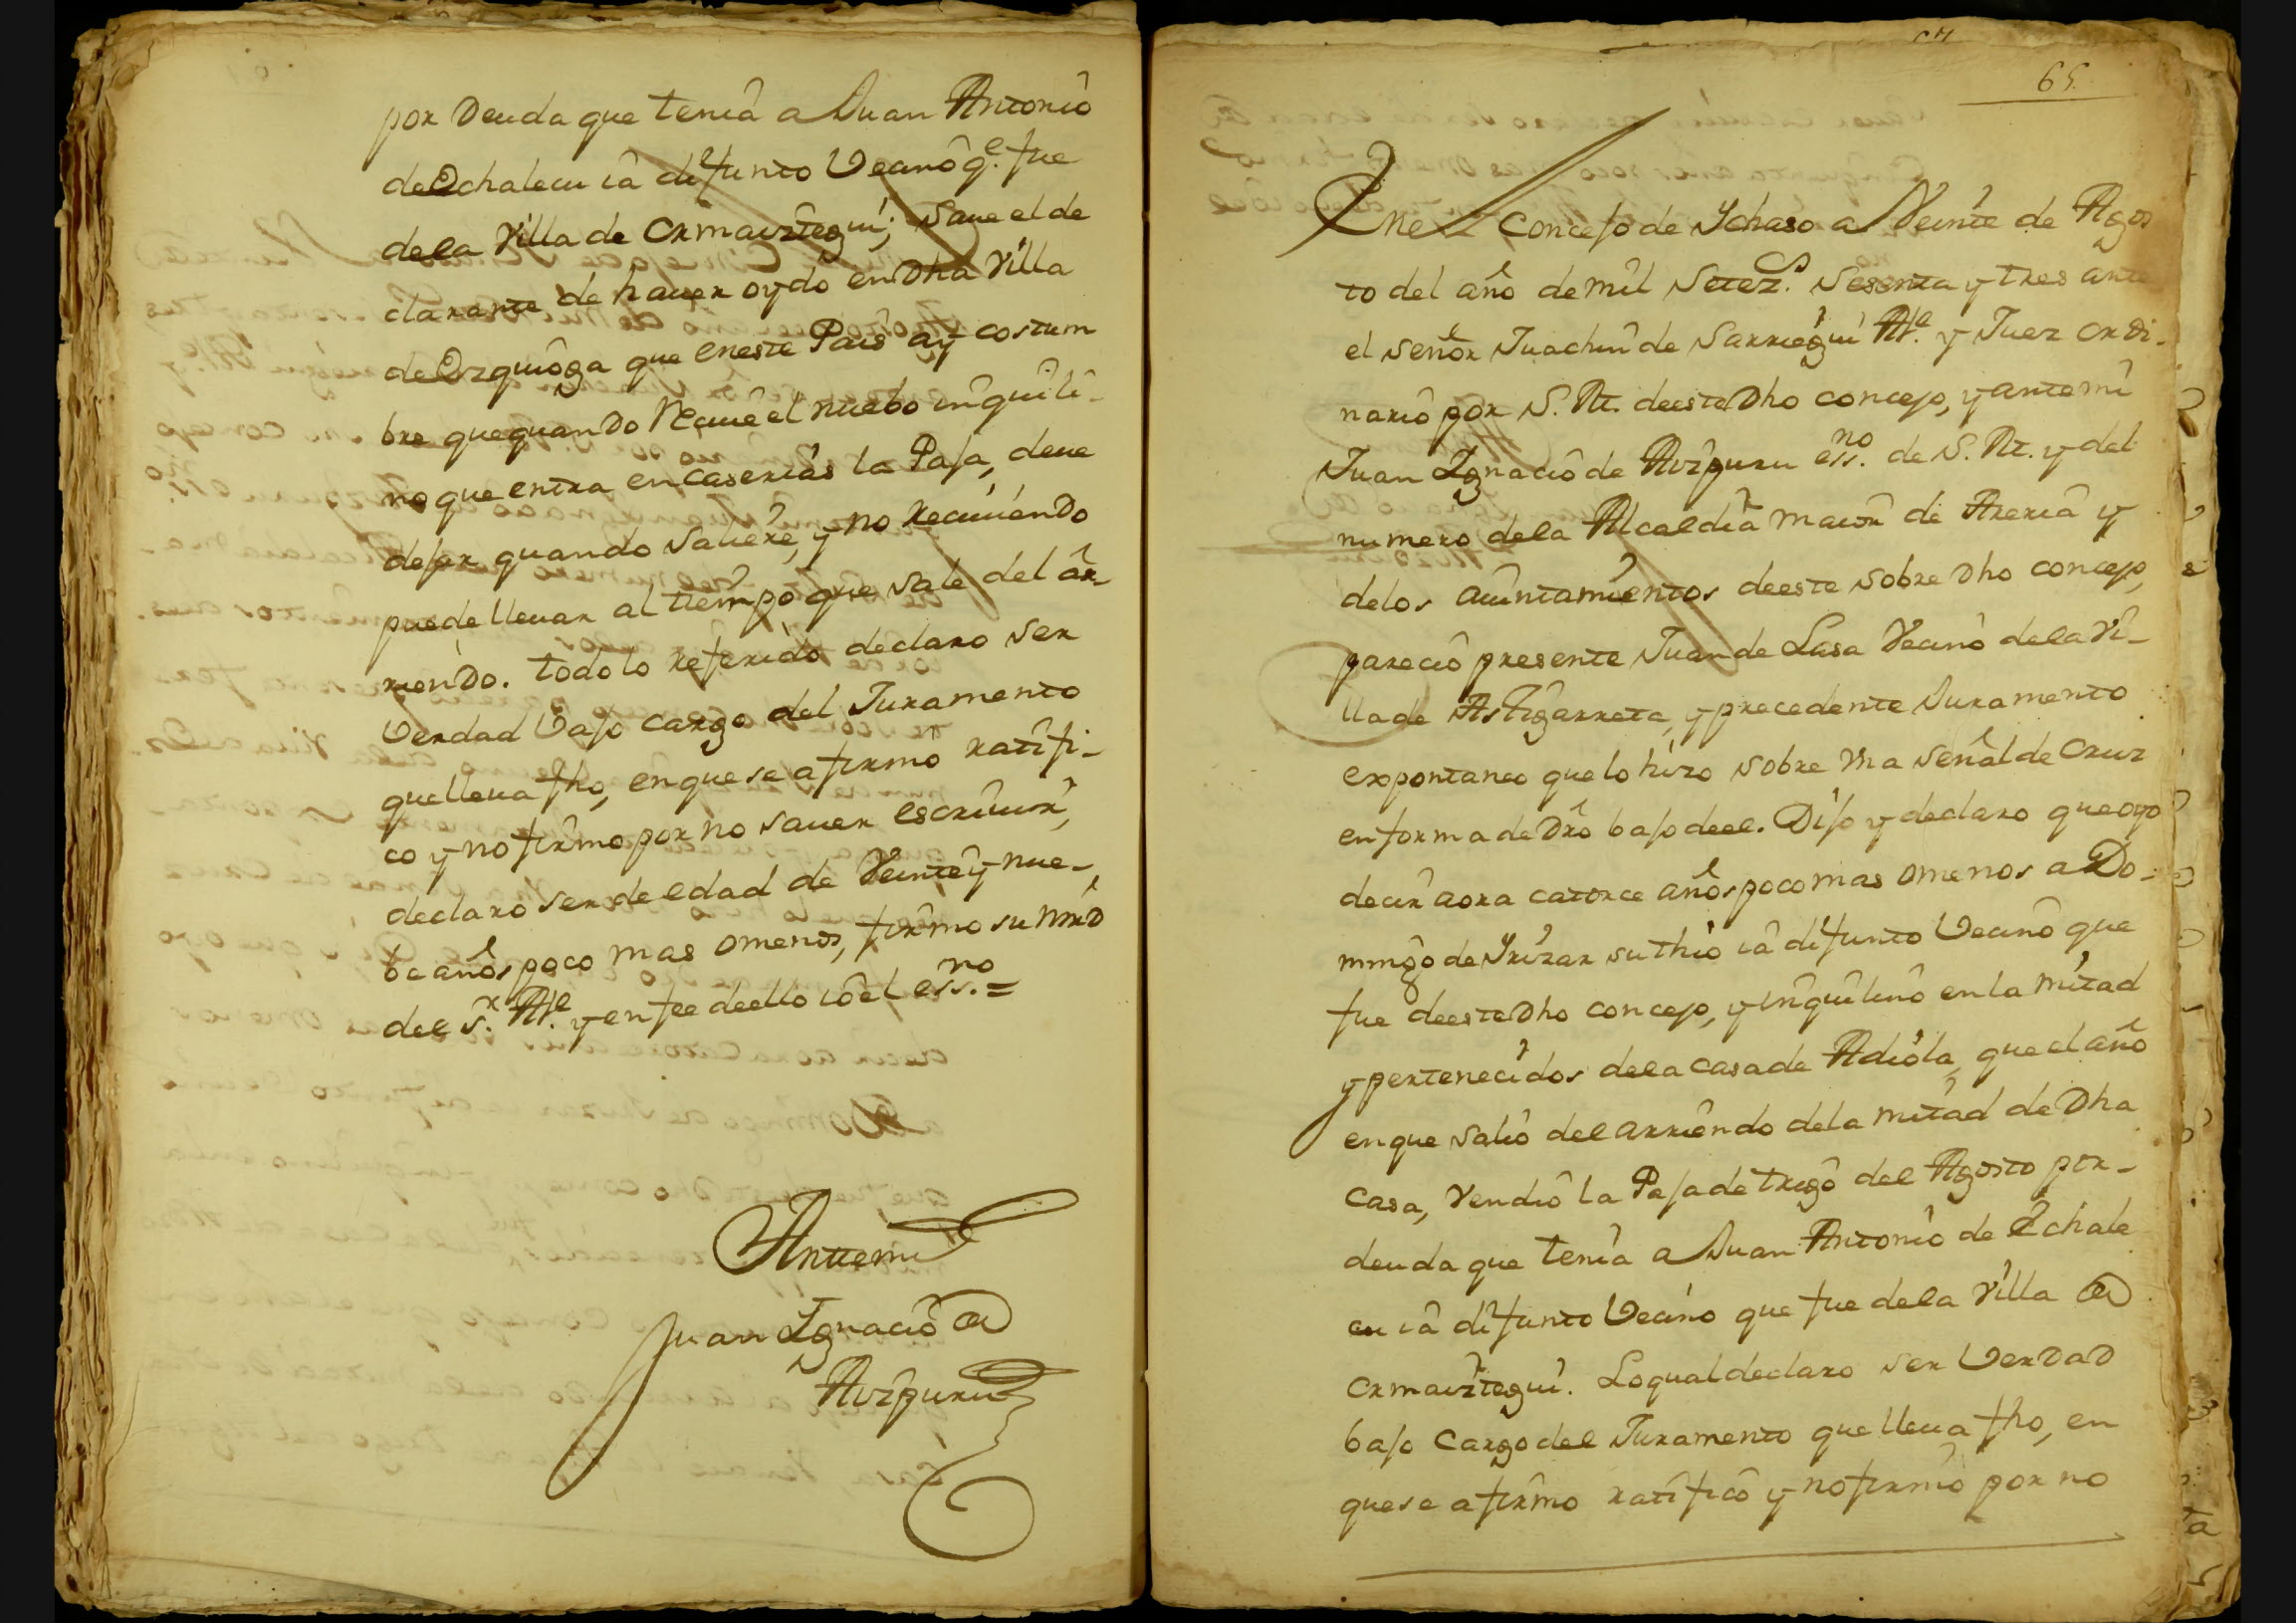 por Deuda que tenia a Juan Antonio
de Echalecu ia difunto Vecino q.e fue
de la Villa de Ormaiztegui; Save el de
clarante de haver oydo en Dha Villa
de Ezquioga que en este Pais ay costum
bre que quando Recive el nuebo inquili-
no que entra en Caserias la Paja, deve
dejar quando saliere, y no reciviendo
puede llevar al tiempo que sale del ar-
riendo. todo lo referido declaro ser
Verdad Vajo cargo del Juramento
que lleva fho, en que se afirmo ratifi-
co y no firmo por no saver escrivir,
declaro ser de edad de Veinte y nue-
be años poco mas o menos, firmo su mrd
del s.r Al.e y en fee de ello io el ess.no =
Ante mi
Juan Ignacio de
Aizpuru
65.
En el Concejo de Ychaso a Veinte de Agos
to del año de mil Setez.s Sesenta y tres ante
el señor Juachin de Sarriegui Al.e y Juez ordi-
nario por S. M. de este Dho concejo, y ante mi
Juan Ignacio de Aizpuru ess.no de S. M. y del
numero de la Alcaldia maior de Areria y
de los aiuntamientos de este sobre dho concejo,
parecio presente Juan de Lasa Vecino de la Vi-
lla de Astigarreta, y precedente Juramento
expontaneo que lo hizo sobre Vna señal de Cruz
en forma de Dro bajo de el. Dijo y declaro que oyo
decir aora catorce años poco mas o menos a Do-
mingo de Yrizar su thio ia difunto Vecino que
fue de este Dho concejo, y inquilino en la mitad
y pertenecidos de la casa de Adiola, que el año
en que salio del arriendo de la mitad de Dha
Casa, Vendio la Paja de trigo del Agosto por-
deuda que tenia a Juan Antonio de Echale
cu ia difunto Vecino que fue de la Villa de
Ormaiztegui. Lo qual declaro ser Verdad
bajo Cargo del Juramento que lleva fho, en
que se afirmo ratifico y no firmo por no